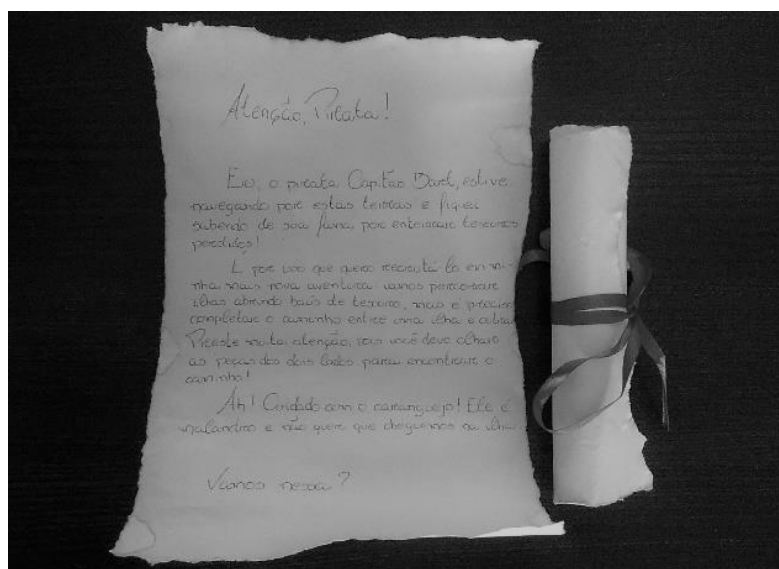 Atenção, Pirata!
Eu, o pirata Capitão Dart, estive
navegando por estas terras e fiquei
sabendo de sua fama por enterrar tesouros
perdidos!
É por isso que quero recrutá-lo em mi-
nha mais nova aventura vamos percorrer
ilhas abrindo baús de tesouro, mas é preciso
completar o caminho entre uma ilha e outra.
Preste muita atenção, pois você deve olhar
as peças dos dois lados para encontrar o
caminho!
Ah! Cuidado com o caranguejo! Ele é
malandro e não quer que cheguemos na ilha.
Vamos nessa?